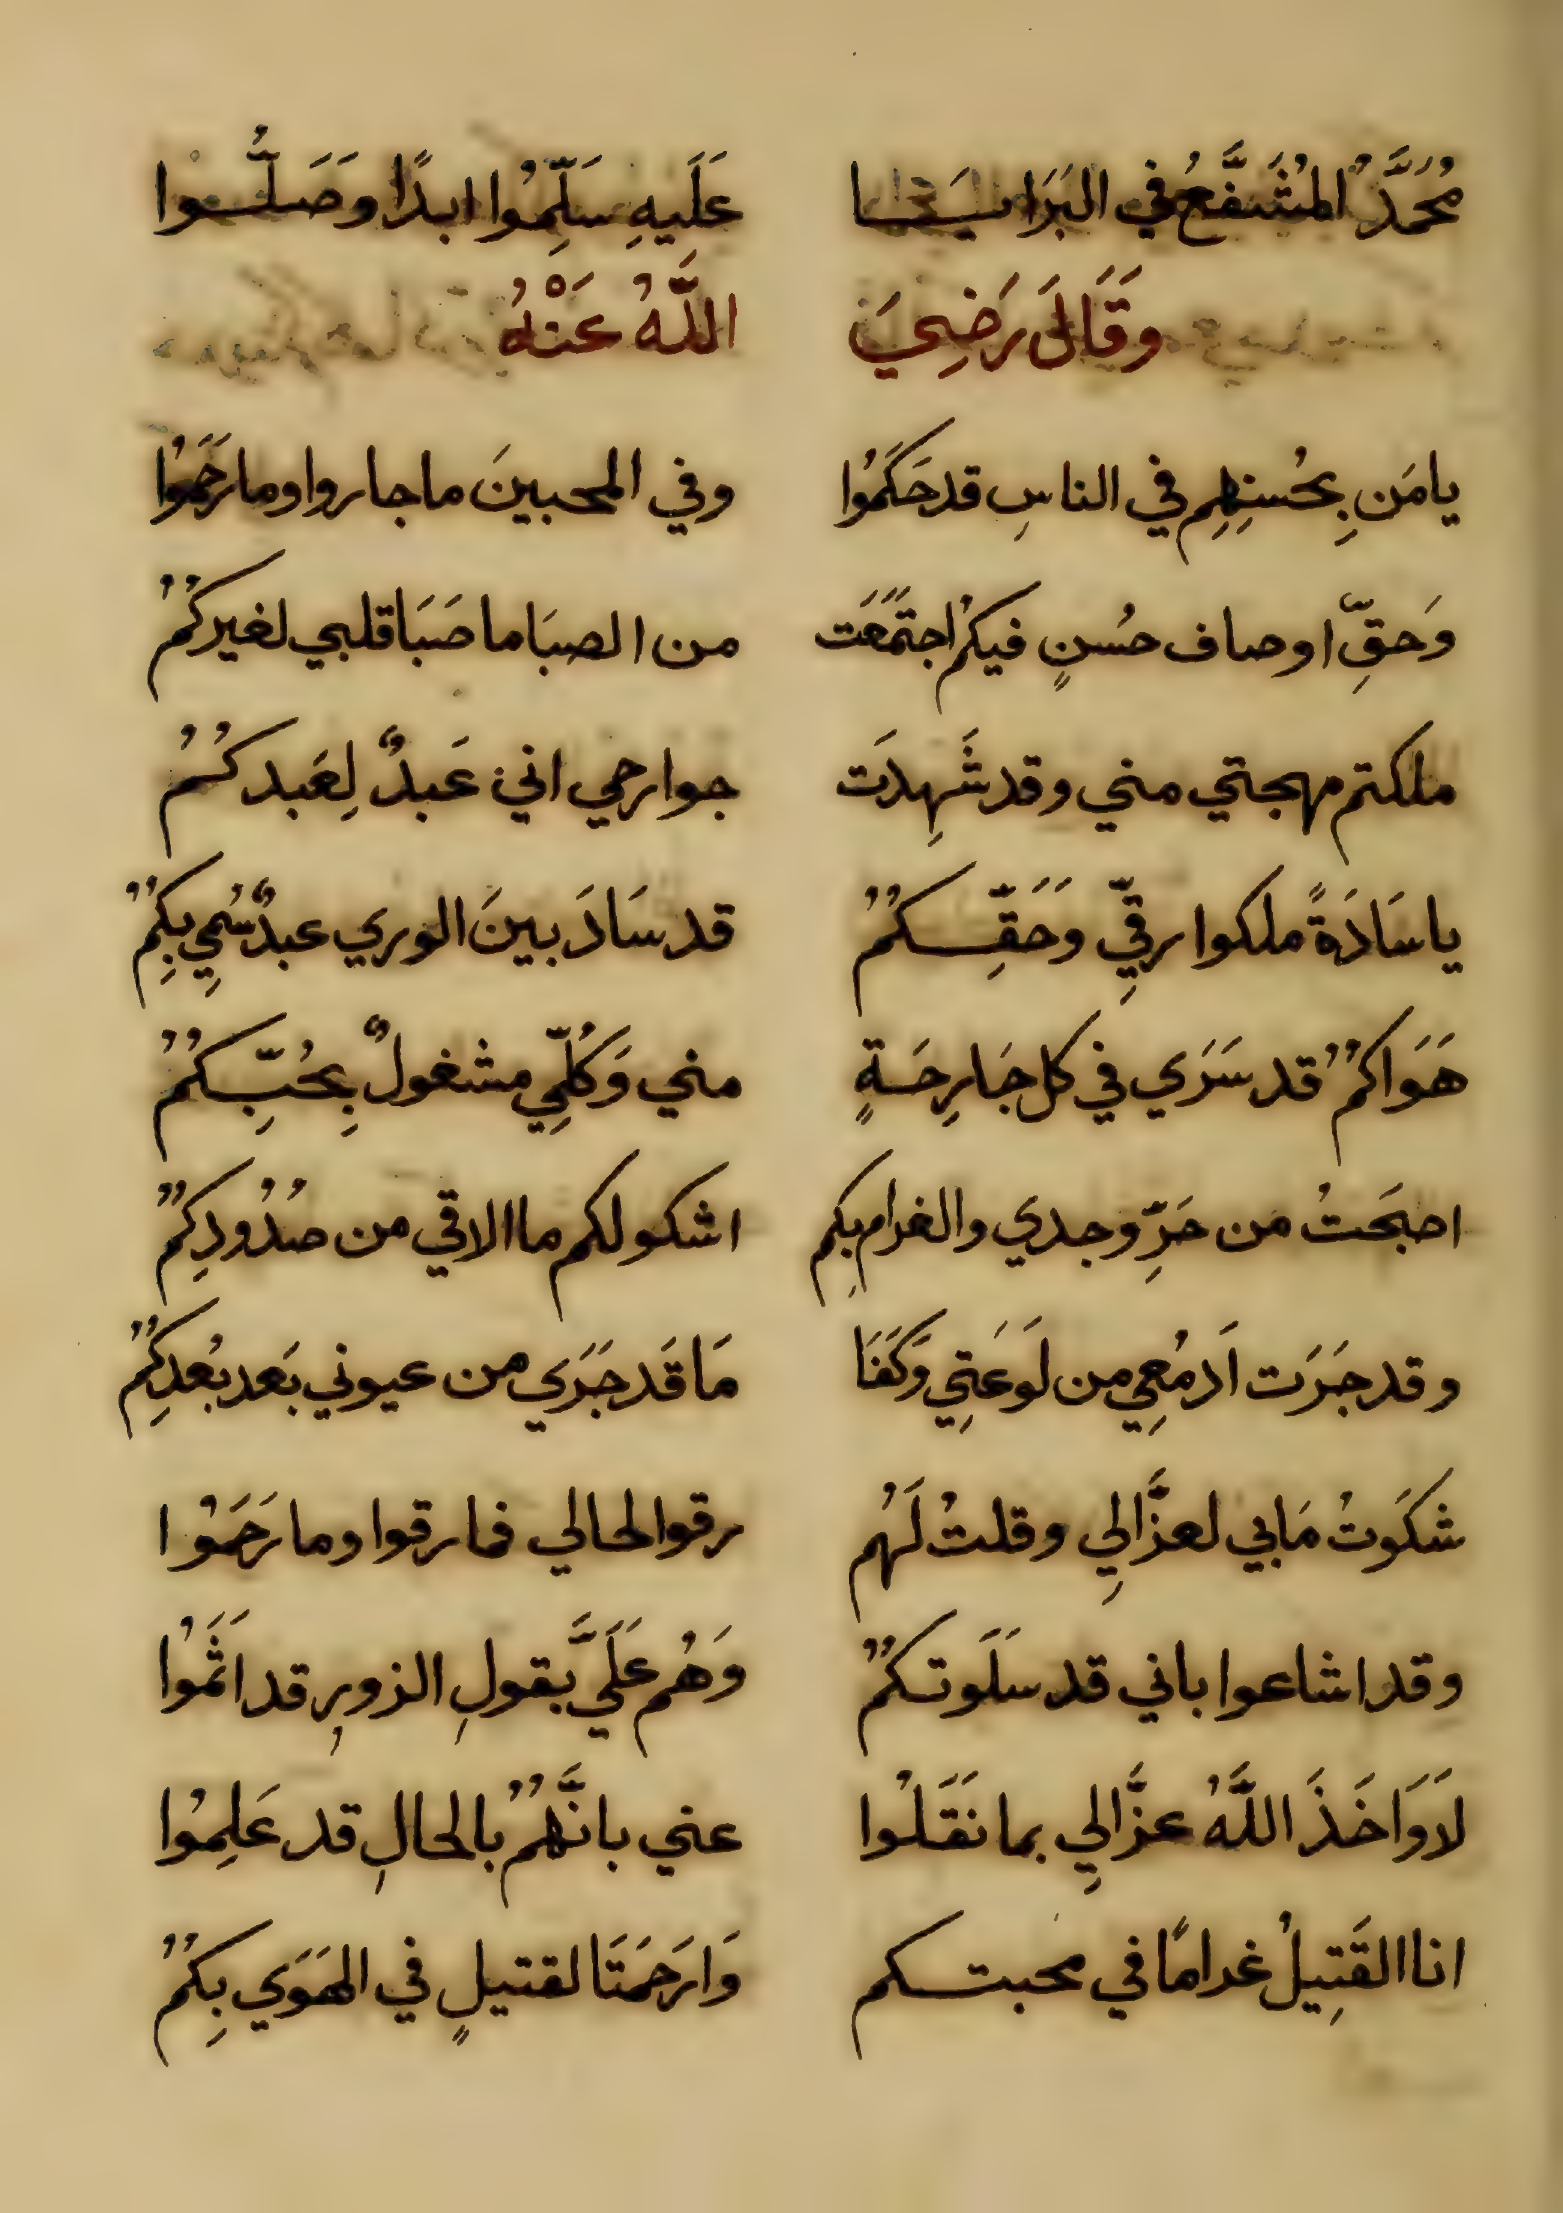 مُحَمَّدٌ المُشَفَّعُ في البَرَايَا عَلَيهِ سَلِّمُوا ابدًا وَصَلُّوا
وَقَالَ رَضِيَ اللَّهُ عَنْهُ
يا مَن بِحُسنِهِم في الناسِ قد حَكَمُوا وفي المحبينَ ما جاروا وما رَحَمُوا
وَحقِّ اوصاف حُسنٍ فيكمُ اجتمَعَت من الصبَا ما صَبَا قلبي لغيركُمُ
ملكتم مهجتي مني وقد شَهِدَت جوارحي اني عَبدٌ لِعَبدكُمُ
يا سَادَةً ملكوا رقِّي وَحَقِّكُمُ قد سَادَ بينَ الوري عبدٌ سُمِي بِكِمُ
هَوَاكمُ قد سَرَي في كل جَارِحَةٍ مني وَكُلِّي مشغولٌ بِحُبِّكُمُ
اصبَحتُ من حَرِّ وجدي والغرام بِكم اشكو لكم ما الاقي من صُدُودِكُمُ
وقد جَرَت اَدمُعِي من لَوعَتِي وَكَفَا مَا قَد جَرَي من عيوني بَعد بُعدِكُمُ
شكَوتُ مَا بي لعزَّالِي وقلتُ لَهُم رقوا لحالي فما رقوا وما رَحَمُوا
وقد اشاعوا باني قد سَلَوتكمُ وَهُم عَلَيَّ بقولِ الزورِ قد اَثَمُوا
لاَ وَاخَذَ اللَّهُ عزَّالِي بما نَقَلُوا عني بانَّهُمُ بالحالِ قد عَلِمُوا
انا القَتِيلُ غرامًا في محبتكم وَارَحمَتَا لقتيلٍ في الهَوَي بِكِمُ